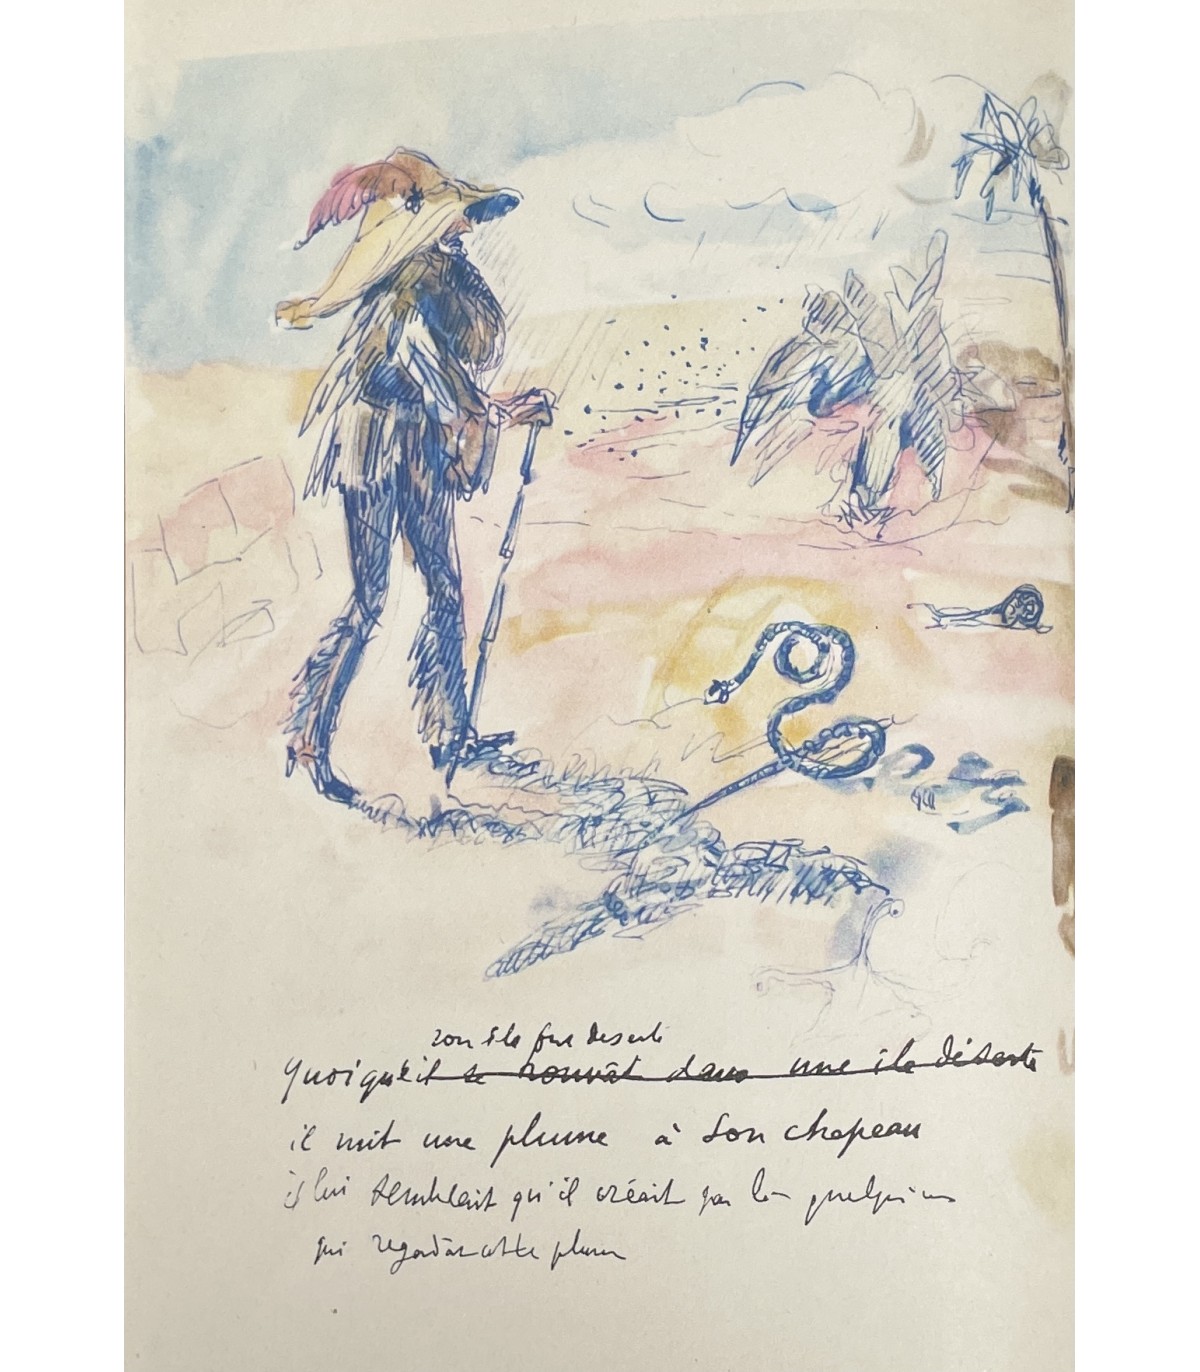 son île fut deserte
Quoiqu'il se trouvât dans une île déserte
il mit une plume à son chapeau
il lui semblait qu'il créait par là quelqu'un
qui regardât cette plume